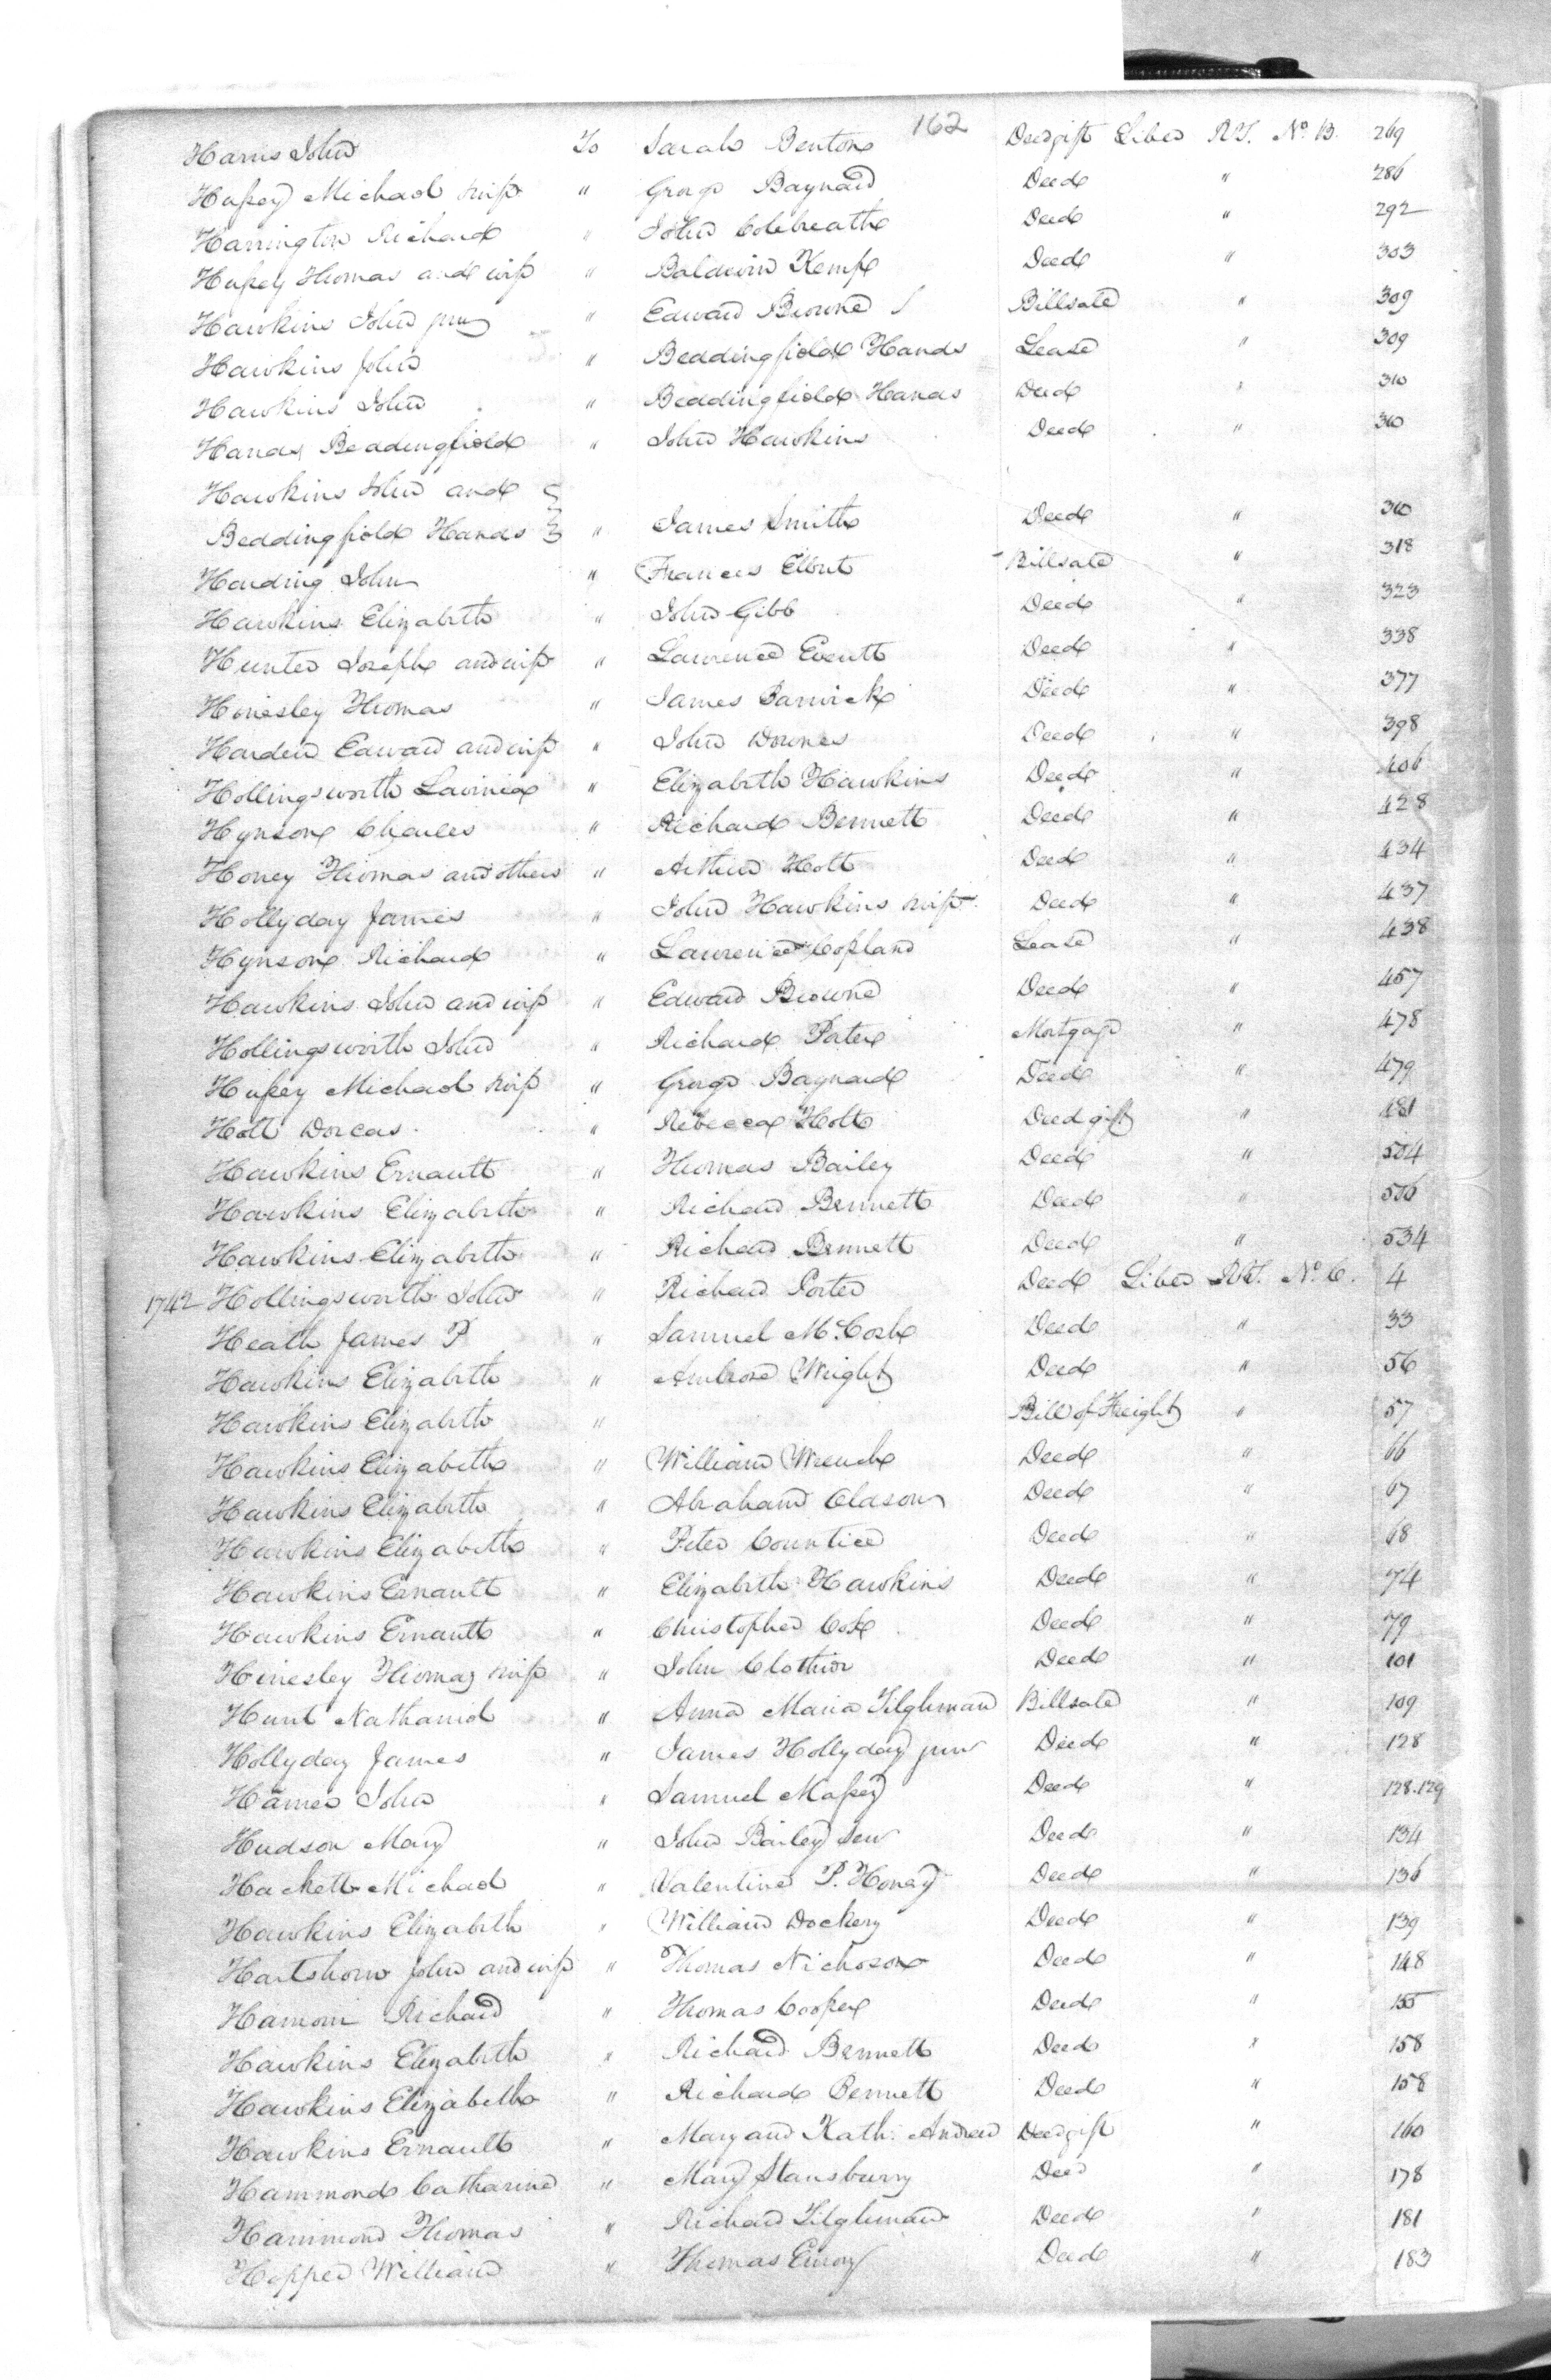 162
Harris John To Sarah Benton Deedgift Liber RT. No. B. 269
Hussey Michael & wife " George Baynard Deed " 286
Harrington Richard " John Colebreath Deed " 292
Hussey Thomas and wife " Baldwin Kemp Deed " 303
Hawkins John junr " Edward Browne Billsale " 309
Hawkins John " Beddingfield Hands Lease " 309
Hawkins John " Beddingfield Hands Deed " 310
Hands Beddingfield " John Hawkins Deed " 310
Hawkins John and
Beddingfield Hands " James Smith Deed " 310
Harding John " Frances Elbert Billsale " 318
Hawkins Elizabeth " John Gibb Deed " 323
Hunter Joseph and wife " Lawrence Everett Deed " 338
Hinesley Thomas " James Barwick Deed " 377
Harden Edward and wife " John Downes Deed " 398
Hollingsworth Lavinia " Elizabeth Hawkins Deed " 406
Hynson Charles " Richard Bennett Deed " 428
Honey Thomas and others " Arthur Holt Deed " 434
Hollyday James " John Hawkins & wife Deed " 437
Hynson Richard " Lawrence Copland Lease " 438
Hawkins John and wife " Edward Browne Deed " 457
Hollingsworth John " Richard Porter Mortgage " 478
Hussey Michael & wife " George Baynard Deed " 479
Holt Dorcas " Rebecca Holt Deed gift " 481
Hawkins Ernault " Thomas Bailey Deed " 504
Hawkins Elizabeth " Richard Bennett Deed " 506
Hawkins Elizabeth " Richard Bennett Deed " 534
1742 Hollingsworth John " Richard Porter Deed Liber RT. No. C. 4
Heath James P " Samuel McCosh Deed " 33
Hawkins Elizabeth " Ambrose Wright Deed " 56
Hawkins Elizabeth " Bill of Freight " 57
Hawkins Elizabeth " William Wrench Deed " 66
Hawkins Elizabeth " Abraham Oldson Deed " 67
Hawkins Elizabeth " Peter Countice Deed " 68
Hawkins Ernault " Elizabeth Hawkins Deed " 74
Hawkins Ernault " Christopher Cox Deed " 79
Hinesley Thomas & wife " John Clothier Deed " 101
Hunt Nathaniel " Anna Maria Tilghman Billsale " 109
Hollyday James " James Hollyday junr Deed " 128
Hamer John " Samuel Massey Deed " 128.129
Hudson Mary " John Bailey Senr Deed " 134
Hackett Michael " Valentine P. Honey Deed " 136
Hawkins Elizabeth " William Dockery Deed " 139
Hartshorn John and wife " Thomas Nichoson Deed " 148
Richard " Thomas Cooper Deed " 155
Hawkins Elizabeth " Richard Bennett Deed " 158
Hawkins Elizabeth " Richard Bennett Deed " 158
Hawkins Ernault " Mary and Kath: Andrew Deedgift " 160
Hammond Catharine " Mary Stansburry Deed " 178
Hammond Thomas " Richard Tilghman Deed " 181
Hopper William " Thomas Emory Deed " 183